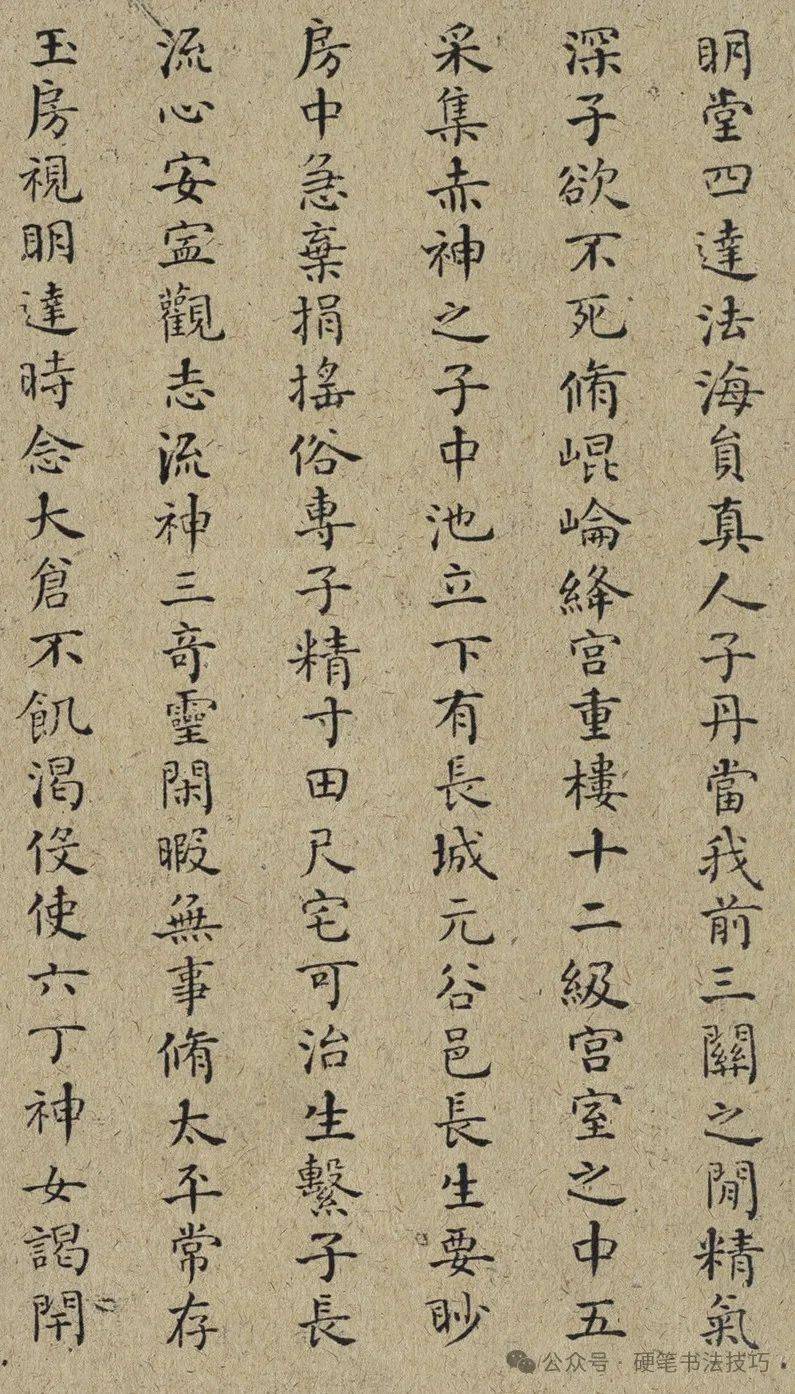 明堂四達法海員真人子丹當我前三關之閒精氣
深子欲不死脩崐崘絳宫重樓十二級宫室之中五
采集赤神之子中池立下有長城元谷邑長生要眇
房中急棄捐搖俗專子精寸田尺宅可治生繫子長
流心安寍觀志流神三奇靈閑暇無事脩太平常存
玉房視明達時念大倉不飢渴伇使六丁神女謁閇
公众号·硬笔书法技巧